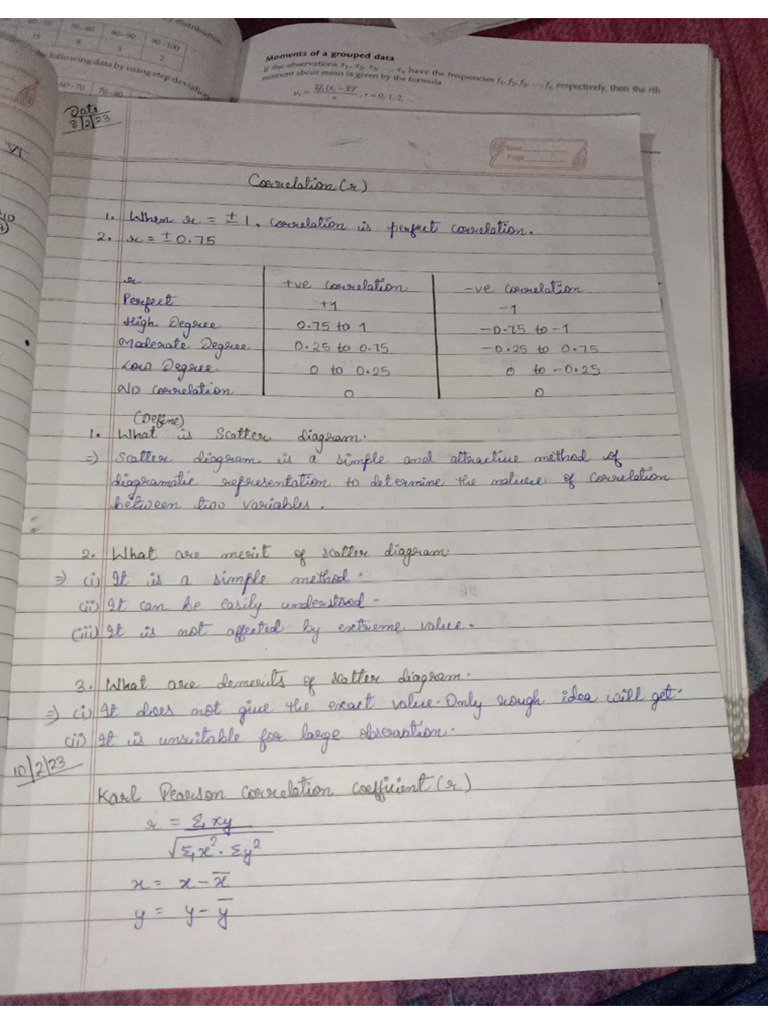 70-80 80-90 90-100
15 8 3 2
following data by using step deviation
60-70 70-80
Moments of a grouped data
If the observations x₁, x₂, x₃, ..., xₙ have the frequencies f₁, f₂, f₃, ..., fₙ respectively, then the rth
moment about mean is given by the formula
r = 0, 1, 2
Date
8/2/23
VI
Date
Page
Correlation (r)
1. When r = ±1, correlation is perfect correlation.
2. r = ±0.75
r +ve correlation -ve correlation
Perfect +1 -1
High Degree 0.75 to 1 -0.75 to -1
Moderate Degree 0.25 to 0.75 -0.25 to 0.75
Low Degree 0 to 0.25 0 to -0.25
No correlation 0 0
(Define)
1. What is Scatter diagram.
⇒ Scatter diagram is a simple and attractive method of
diagramatic representation to determine the nature of correlation
between two variables.
2. What are merit of scatter diagram.
⇒ (i) It is a simple method.
(ii) It can be easily understood -
(iii) It is not affected by extreme value.
3. What are demerits of scatter diagram.
⇒ (i) It does not give the exact value. Only rough idea will get.
(ii) It is unsuitable for large obseraption.
10/2/23
Karl Pearson correlation coefficient (r)
r = Σxy
√Σx² · Σy²
x = x - x̅
y = y - y̅